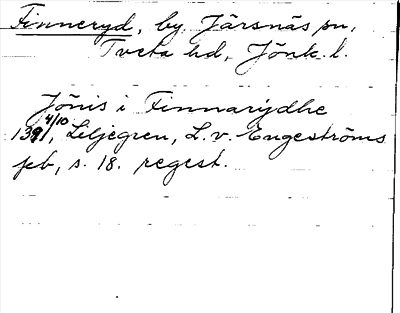 Finneryd, by, Järsnäs sn,
Tveta hd, Jönk. l.
Jönis i Finnarydhe
1391 4/10, Liljegren, L. v. Engeströms
peb, s. 18. regest.